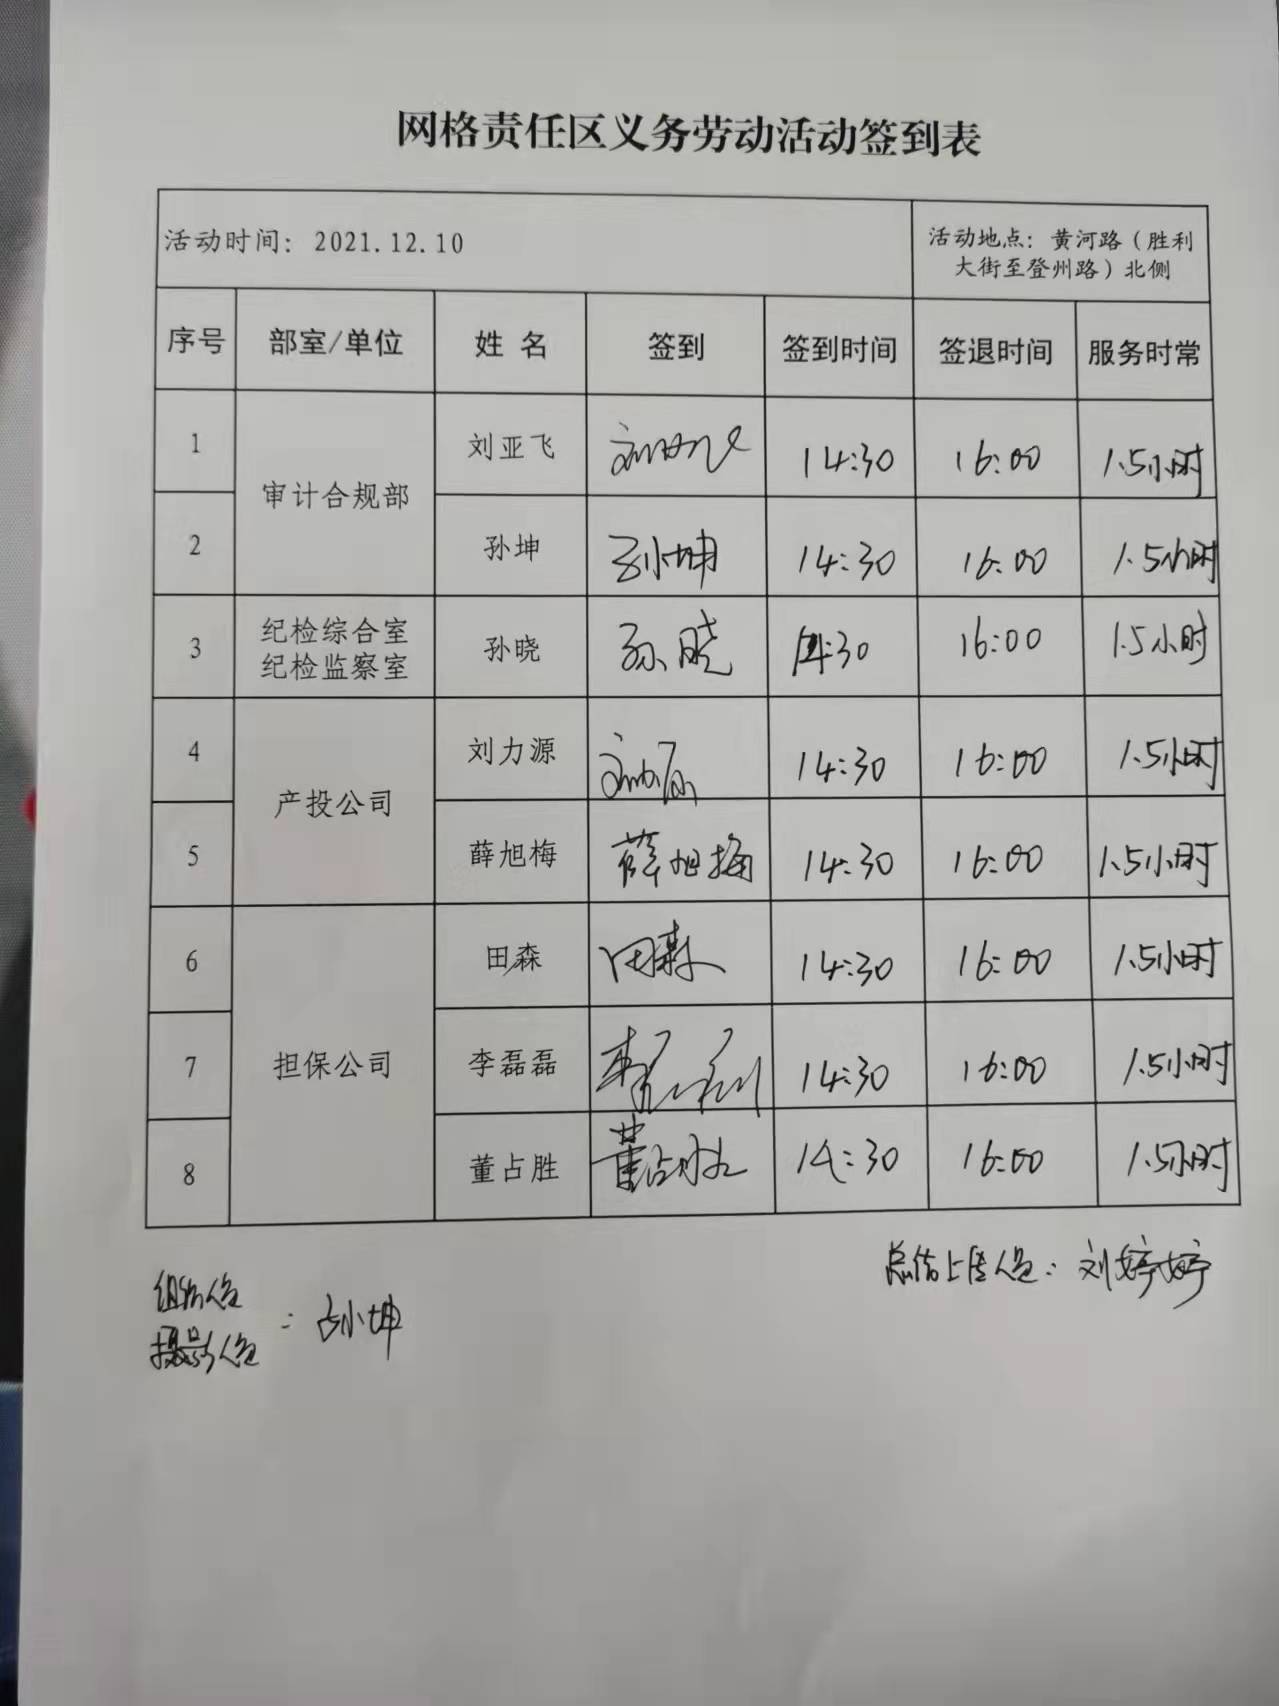 网格责任区义务劳动活动签到表
活动时间：2021.12.10 活动地点：黄河路（胜利
大街至登州路）北侧
序号 部室/单位 姓 名 签到 签到时间 签退时间 服务时常
1 审计合规部 刘亚飞 刘亚飞 14:30 16:00 1.5小时
2 孙坤 孙坤 14:30 16:00 1.5小时
3 纪检综合室 孙晓 孙晓 14:30 16:00 1.5小时
纪检监察室
4 产投公司 刘力源 刘力源 14:30 16:00 1.5小时
5 薛旭梅 薛旭梅 14:30 16:00 1.5小时
6 担保公司 田森 田森 14:30 16:00 1.5小时
7 李磊磊 李磊磊 14:30 16:00 1.5小时
8 董占胜 董占胜 14:30 16:00 1.5小时
总结上传人员：刘婷婷
组织人员
摄影人员：孙坤